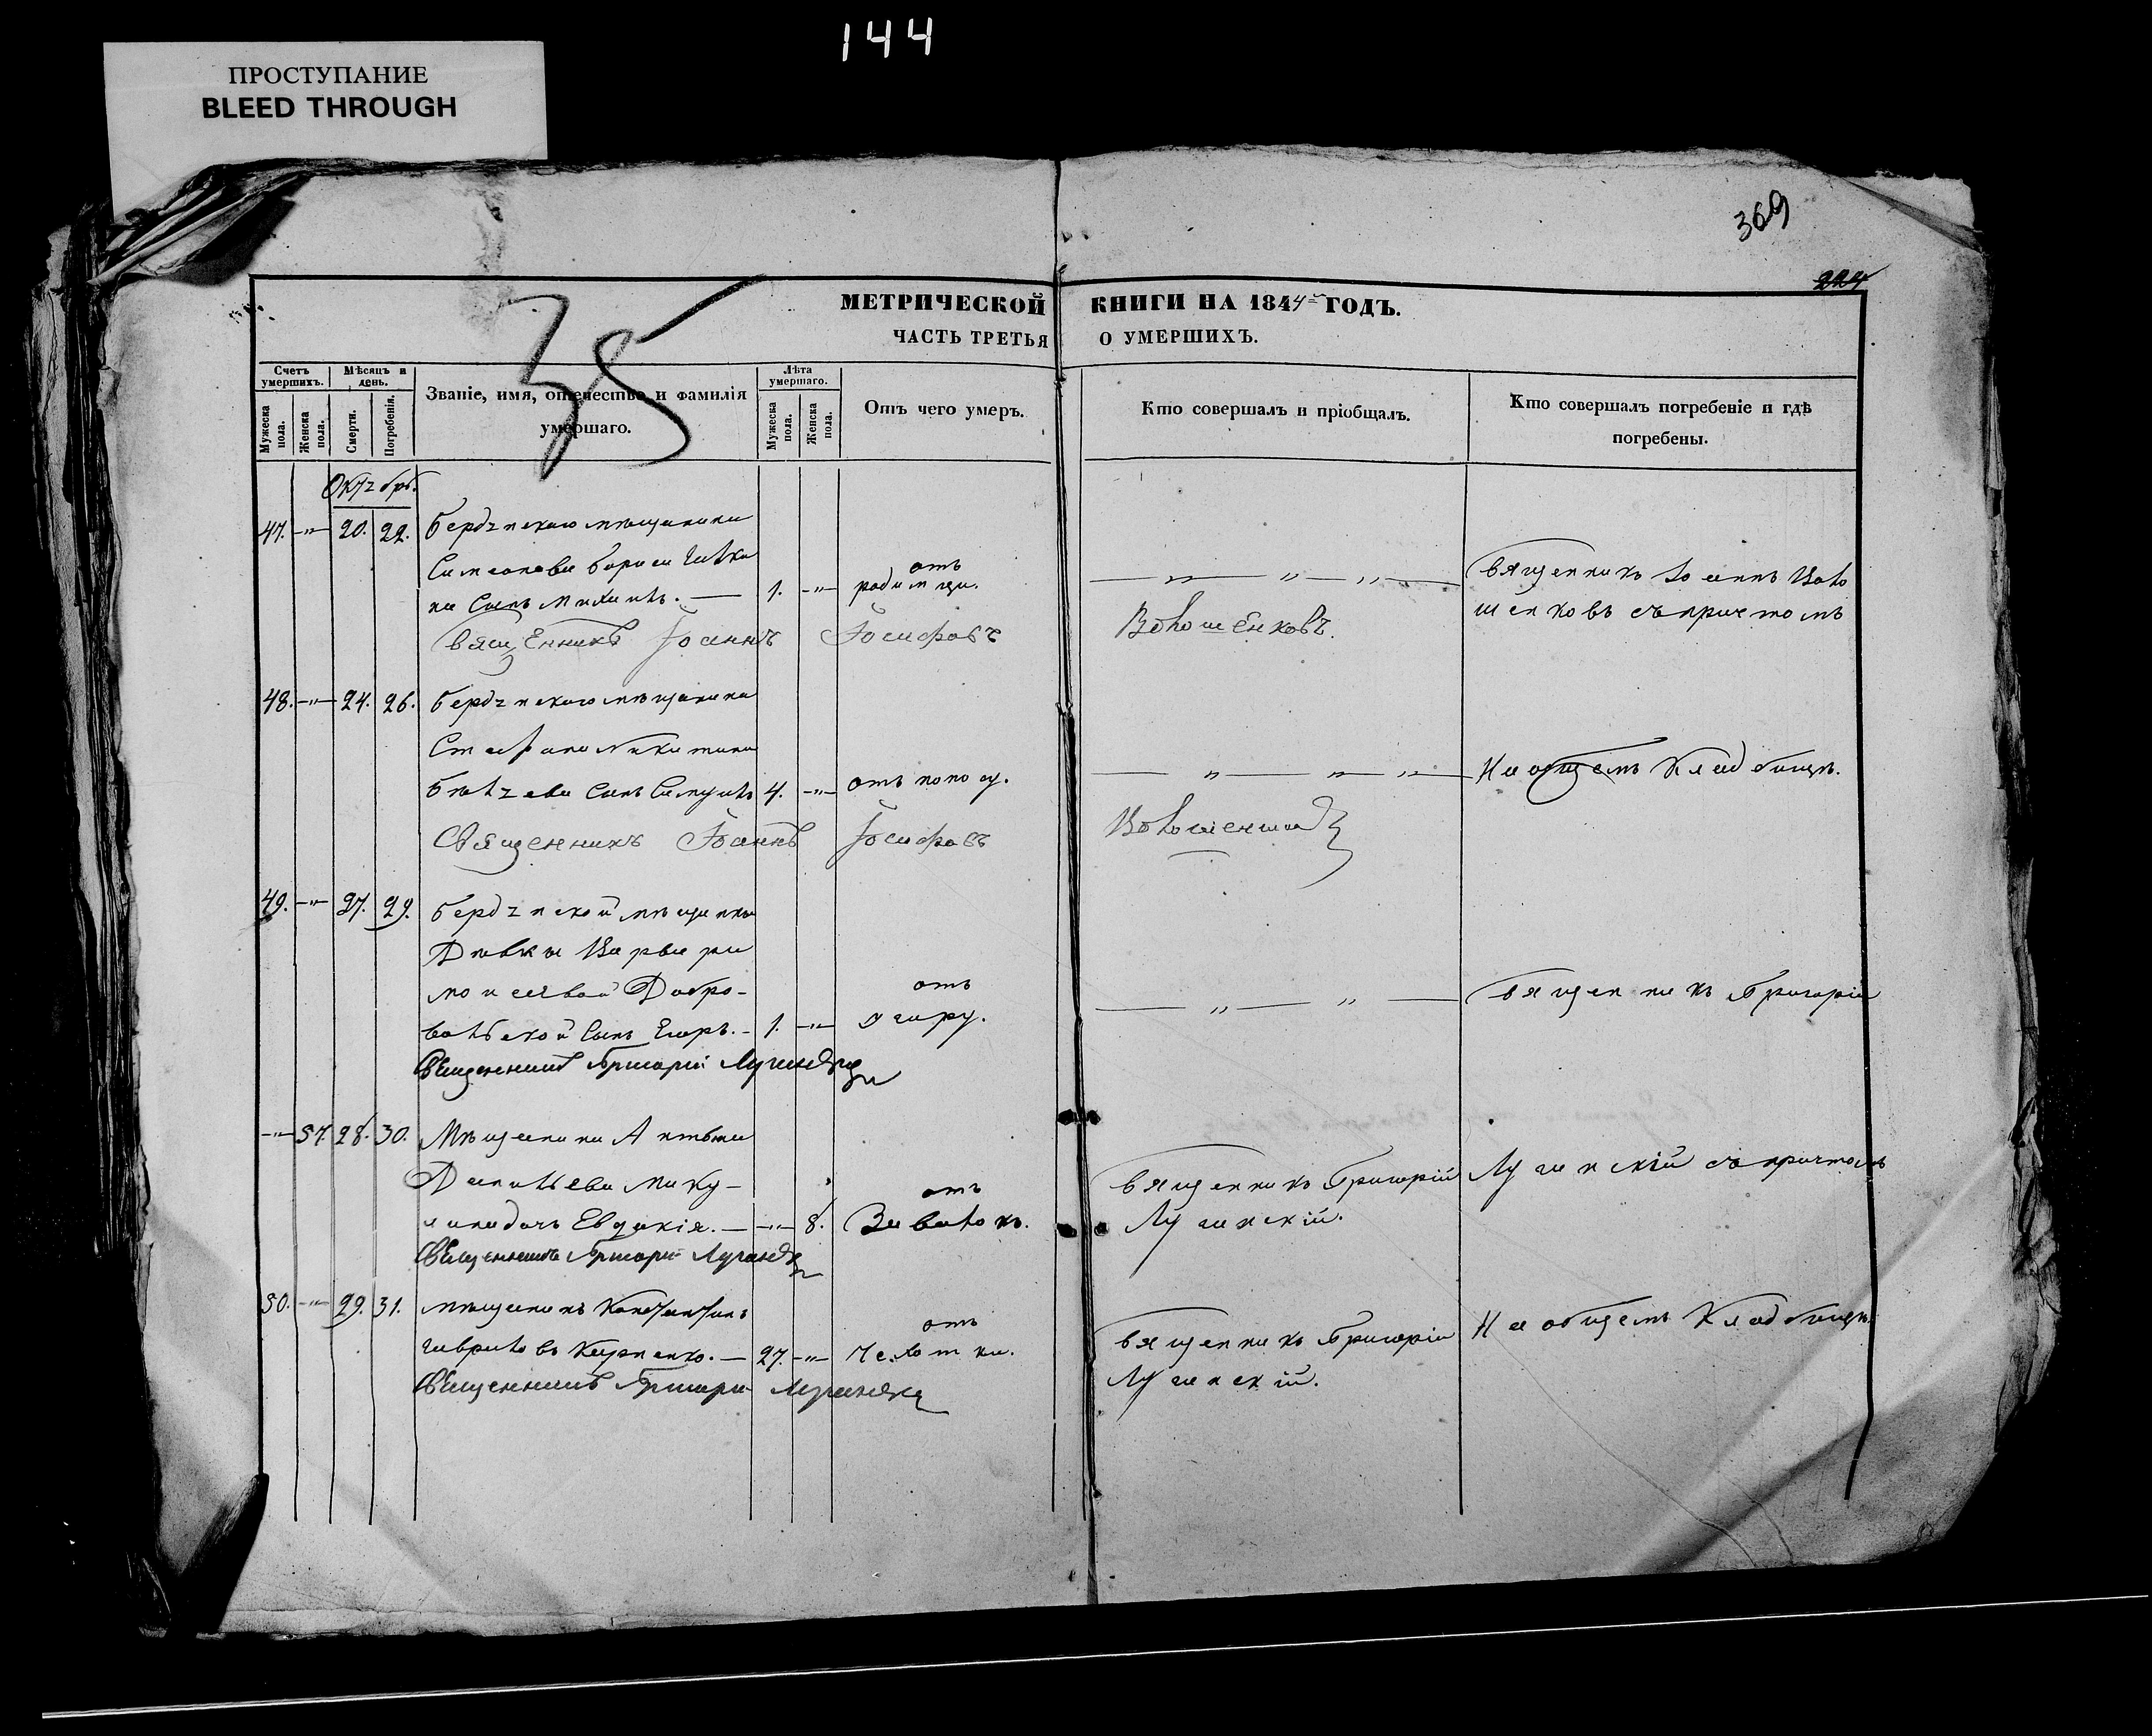 144
ПРОСТУПАНИЕ
BLEED THROUGH
369
224
35
МЕТРИЧЕСКОЙ КНИГИ НА 1844й ГОДЪ.
ЧАСТЬ ТРЕТЬЯ О УМЕРШИХЪ.
Счетъ умершихъ.
Мужеска пола.
Женска пола.
Мѣсяцъ и день.
Смерти.
Погребенія.
Званіе, имя, отечество и фамилія умершаго.
Лѣта умершаго.
Мужеска пола.
Женска пола.
Отъ чего умеръ.
Кто совершалъ и пріобщалъ.
Кто совершалъ погребеніе и гдѣ погребены.
Октябрь.
47. -"- 20. 22. Бердянскаго мѣщанина
сынъ Михаилъ. — 1. -"- отъ родимци.
Священникъ Іоаннъ Воло
шенковъ съ причтомъ
Священникъ Іоаннъ Іосифовъ Волошенковъ.
48. -"- 24. 26. Бердянскаго мѣщанина
Стефана Никитина
сынъ Самуилъ 4. -"- отъ поносу.
На общемъ кладбищѣ.
Священникъ Іоаннъ Іосифовъ
49. -"- 27. 29. Бердянской мѣщанки
Дѣвки Варвары
Добро-
вольской сынъ Егоръ. - 1. -"- отъ жару.
Священникъ Григорій
Священникъ Григорій
-"- 57. 28. 30. Мѣщанина
Данилева Мику-
дочь Евдокія. — -"- 8. отъ Завалокъ.
Священникъ Григорій
Лугинскій.
Лугинскій съ причтомъ
Священникъ Григорій
50. -"- 29. 31. Мѣщанинъ Константинъ
Гавриловъ Карпенко. — 27. -"- отъ Чехотки.
Священникъ Григорій
Лугинскій.
На общемъ кладбищѣ.
Священникъ Григорій